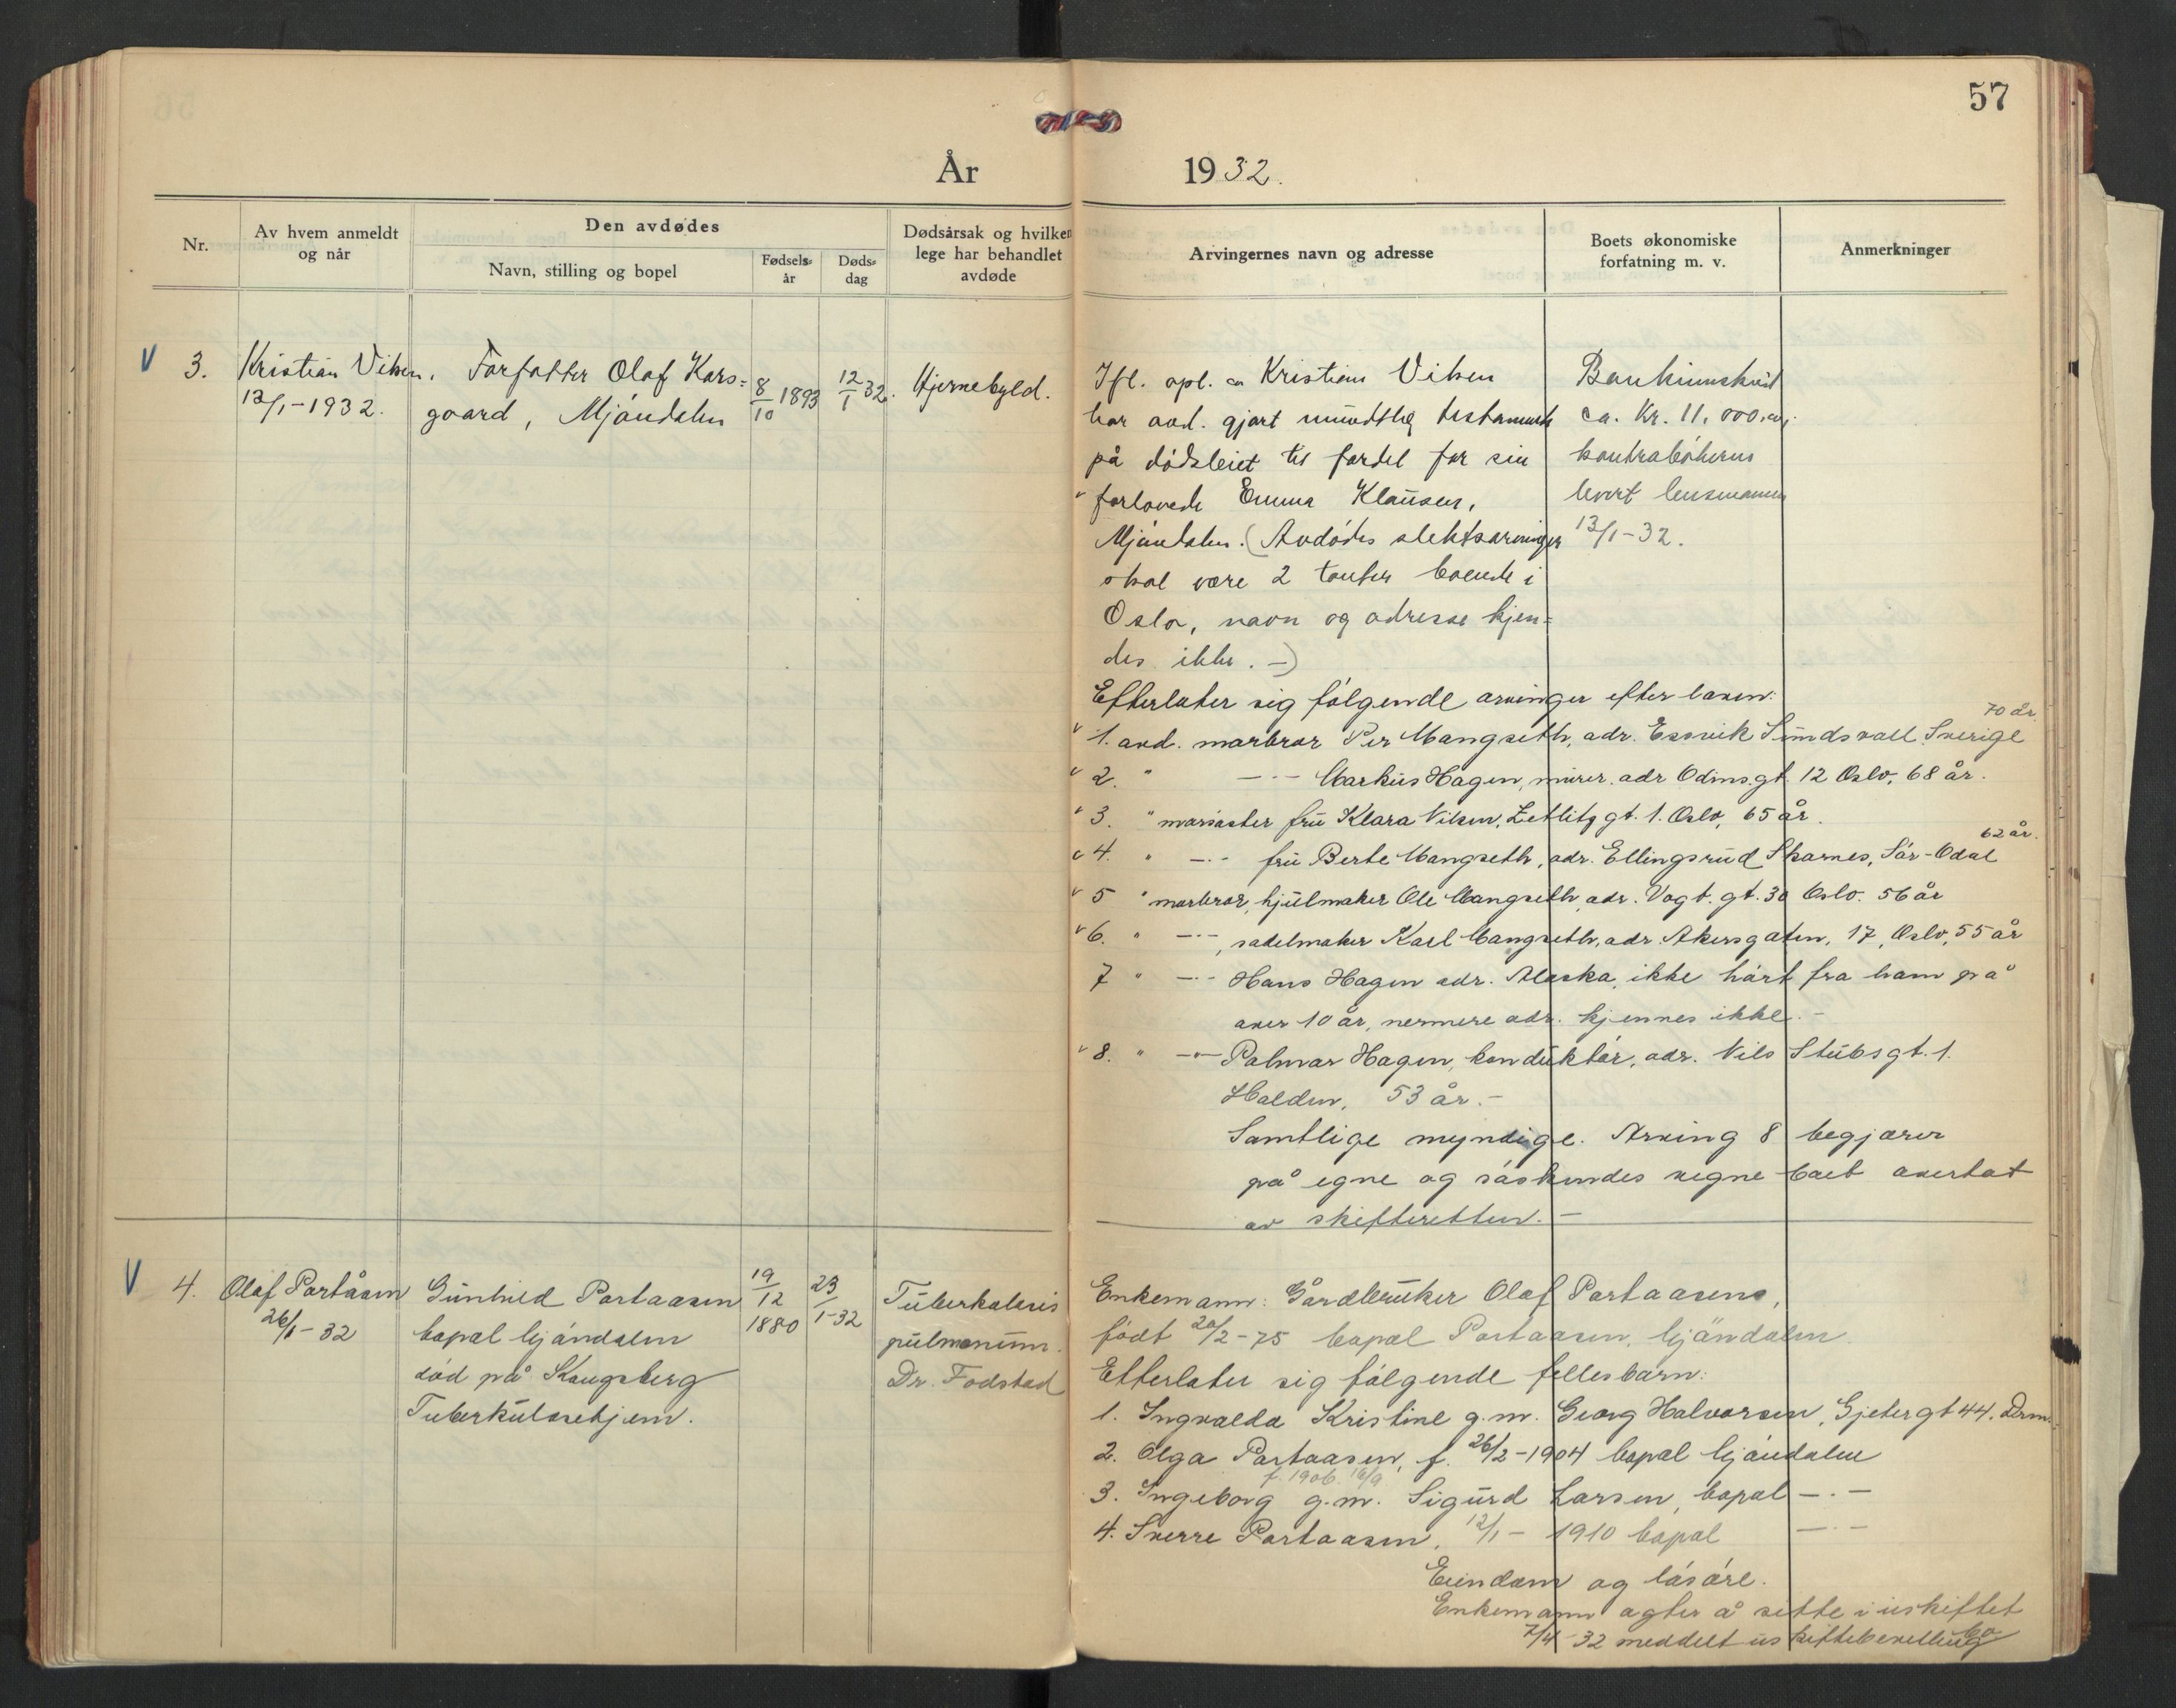 57
År 1932.
Nr.
Av hvem anmeldt
og når
Den avdødes
Navn, stilling og bopel
Fødsels-
år
Døds-
dag
Dødsårsak og hvilken
lege har behandlet
avdøde
Arvingernes navn og adresse
Boets økonomiske
forfatning m. v.
Anmerkninger
V 3.
Kristian Viken,
13/1-1932.
Forfatter Olaf Kors-
gaard, Mjøndalen
8/10 1893
12/1 32.
Hjernebyld.
Ifl. opl. av Kristian Viken
har avd. gjort mundtlig testamente
på dødsleiet til fordel for sin
forlovede Emma Klausen,
Mjøndalen. (Avdødes slektsarvinger
skal være 2 tanter boende i
Oslo, navn og adresse kjen-
des ikke. -)
Bankinnskudd
ca. Kr. 11,000.00,
kontrabøkerne
levert lensmannen
13/1-32.
Efterlater sig følgende arvinger efter loven:
70 år.
1. avd. morbror Per Mangseth, adr. Essvik Sundsvall Sverige
2. " -·- Markus Hagen, murer. adr Odins.gt. 12 Oslo, 68 år.
3. " morsøster fru Klara Nilsen, Zetlitz gt. 1. Oslo, 65 år.
62 år.
4. " -·- fru Berte Mangseth, adr. Ellingsrud Skarnes, Sør-Odal
5 " morbror, hjulmaker Ole Mangseth, adr. Vogt. gt. 30 Oslo. 56 år
6. " -·-, sadelmaker Karl Mangseth, adr. Akersgaten, 17, Oslo, 55 år
7 " -·- Hans Hagen adr. Alaska, ikke hørt fra ham på
over 10 år, nermere adr. kjennes ikke. -
8. " -"- Palmar Hagen, konduktør, adr. Nils Stubsgt. 1.
Halden, 53 år. -
Samtlige myndige. Arving 8 begjærer
på egne og søskendes vegne boet overtat
av skifteretten. -
V 4.
Olaf Portåsen
26/1-32
Gunhild Portaasen
bopal Mjøndalen
død på Kongsberg
Tuberkulosehjem.
19/12 1880
23/1-32
Tuberkulosis
pulmonum.
Dr. Fodstad
Enkemann: Gårdbruker Olaf Portaasen,
født 20/2-75 bopal Portaasen, Mjøndalen.
Etterlater sig følgende fellesbarn:
1. Ingvalda Kristine g.m. Georg Halvorsen, Gjetergt 44. Drm.
2. Olga Portaasen, f. 26/2-1904 bopal Mjøndalen
f. 1906. 16/9
3. Ingeborg g.m. Sigurd Larsen, bopal -·-
4. Sverre Portaasen, 12/1- 1910 bopal -·-
Eiendom og løsøre.
Enkemann agter å sitte i uskiftet
bo
7/4-32 meddelt uskiftebevilling